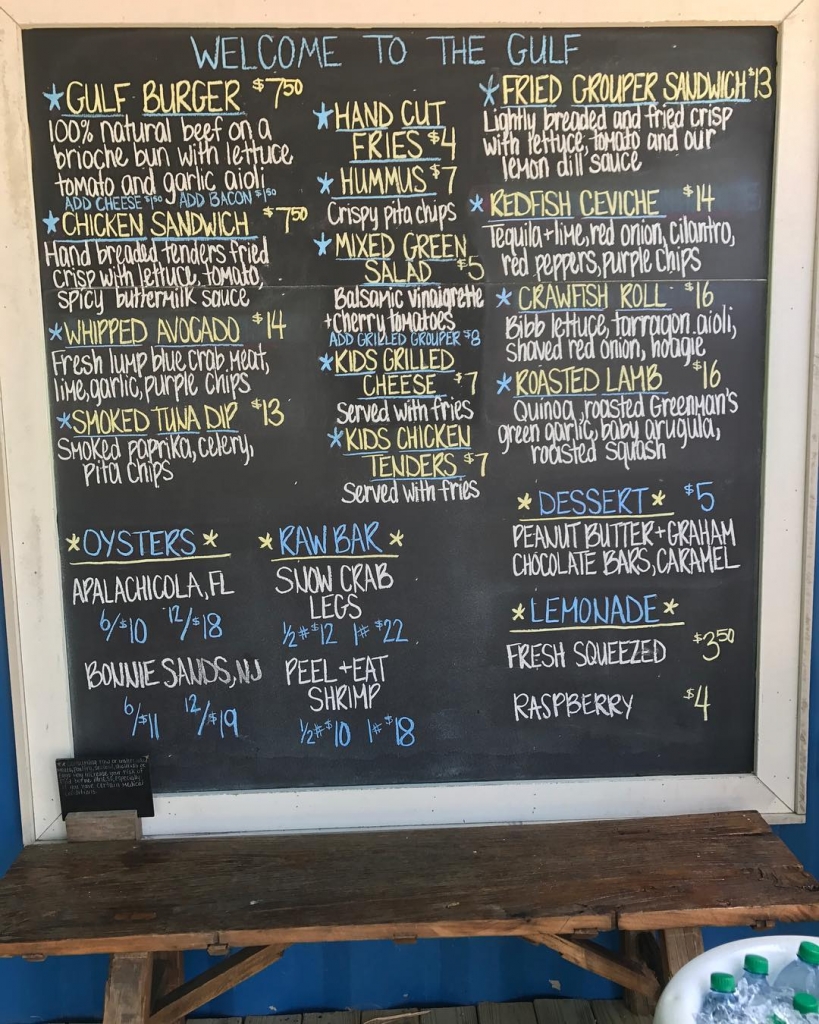 WELCOME TO THE GULF
GULF BURGER $7.50
100% natural beef on a
brioche bun with lettuce
tomato and garlic aioli
ADD CHEESE $1.50 ADD BACON $1.50
CHICKEN SANDWICH $7.50
Hand breaded tenders fried
crisp with lettuce, tomato,
spicy buttermilk sauce
WHIPPED AVOCADO $14
Fresh lump blue crab meat,
lime, garlic, purple chips
SMOKED TUNA DIP $13
Smoked paprika, celery,
Pita chips
HAND CUT
FRIES $4
HUMMUS $7
Crispy pita chips
MIXED GREEN
SALAD $5
Balsamic vinaigrette
+cherry tomatoes
ADD GRILLED GROUPER $8
KIDS GRILLED
CHEESE $7
Served with fries
KIDS CHICKEN
TENDERS $7
Served with fries
FRIED GROUPER SANDWICH $13
Lightly breaded and fried crisp
with lettuce, tomato and our
lemon dill sauce
REDFISH CEVICHE $14
Tequila+lime, red onion, cilantro,
red peppers, purple chips
CRAWFISH ROLL $16
Bibb lettuce, tarragon aioli,
shaved red onion, hoagie
ROASTED LAMB $16
Quinoa, roasted Greenman's
green garlic, baby arugula,
roasted squash
OYSTERS
APALACHICOLA, FL
6/$10 12/$18
BONNIE SANDS, NJ
6/$11 12/$19
RAW BAR
SNOW CRAB
LEGS
1/2# $12 1# $22
PEEL+EAT
SHRIMP
1/2# $10 1# $18
DESSERT $5
PEANUT BUTTER+GRAHAM
CHOCOLATE BARS, CARAMEL
LEMONADE
FRESH SQUEEZED $3.50
RASPBERRY $4